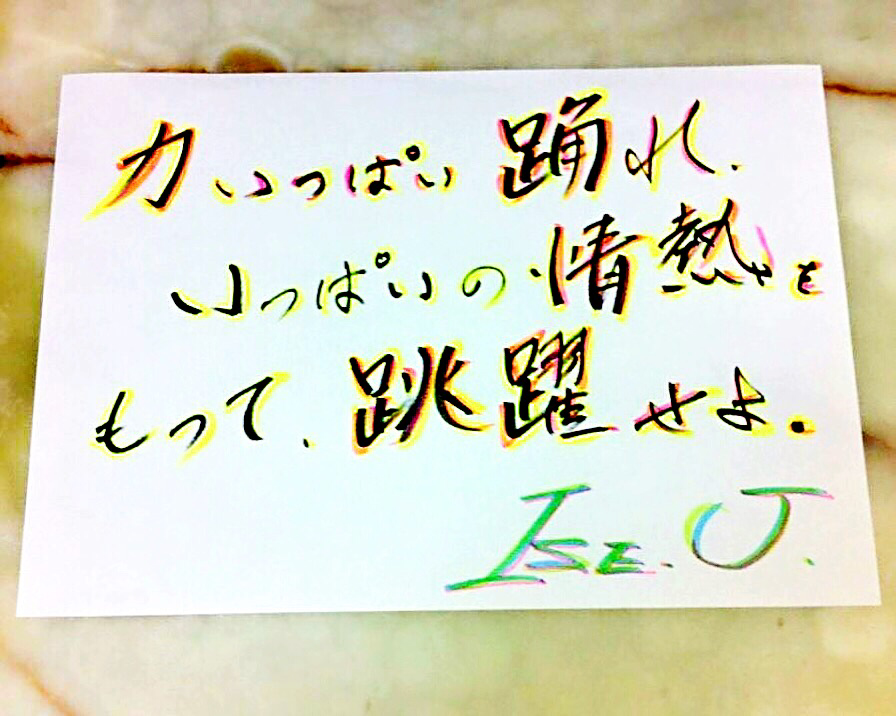 力いっぱい踊れ、
いっぱいの情熱を
もって、跳躍せよ。
ISE. J.